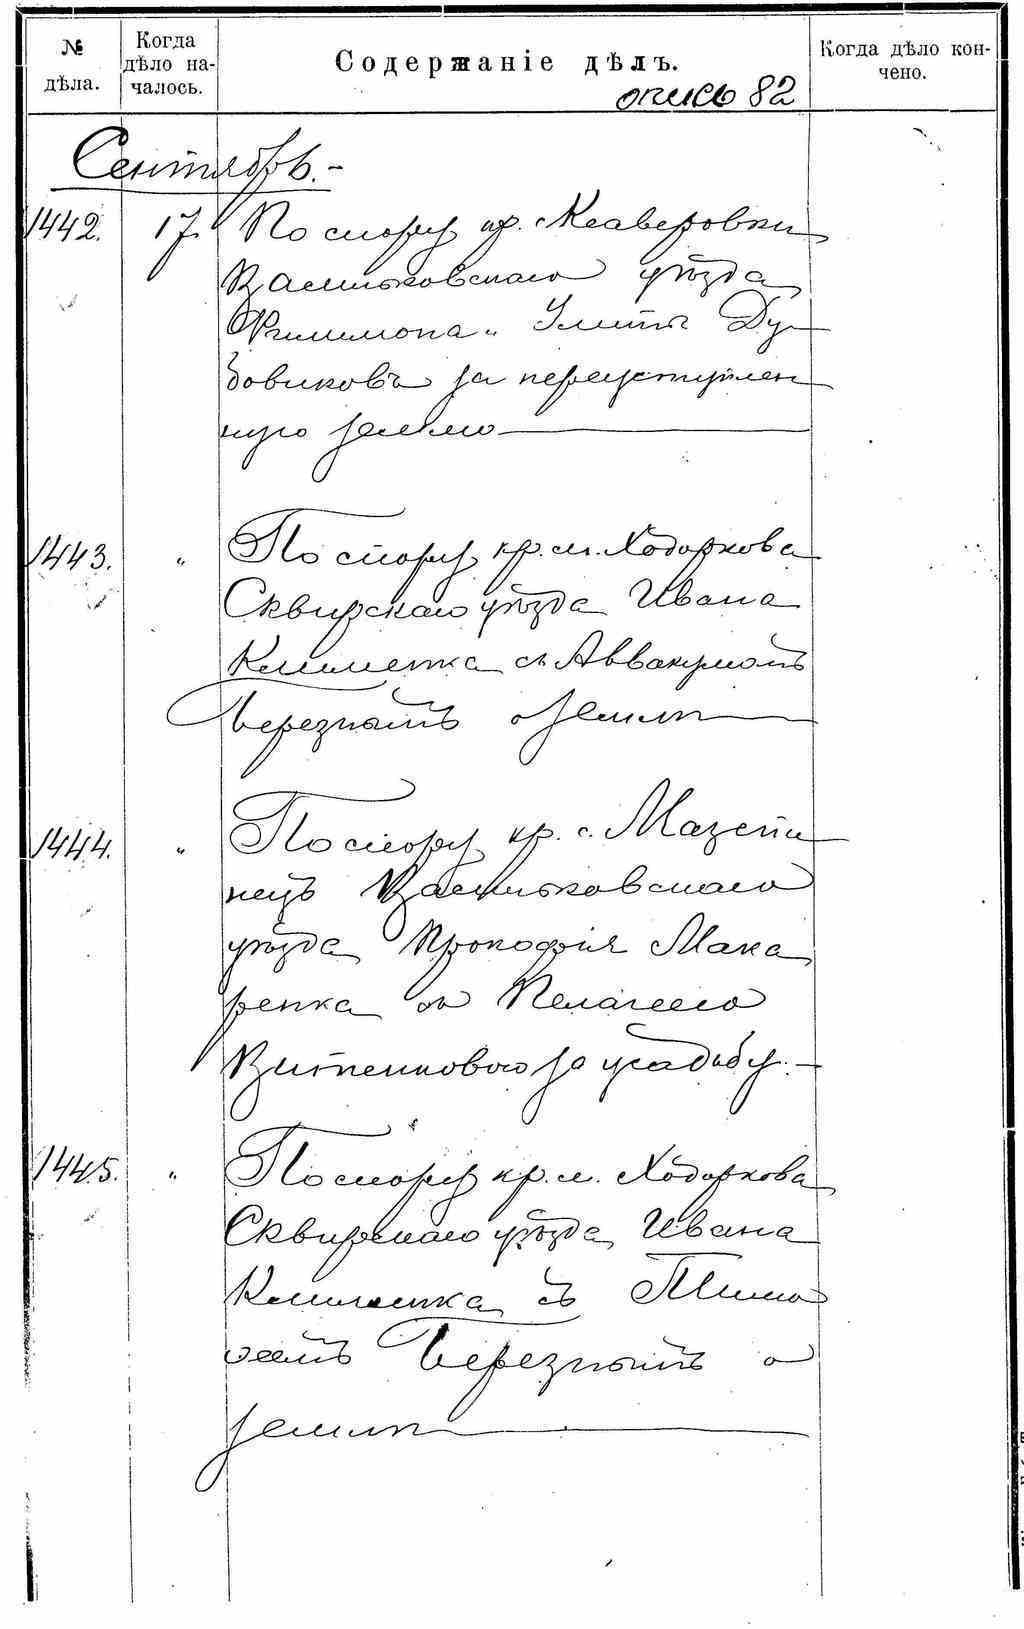 № дѣла.
Когда дѣло на-
чалось.
Содержаніе дѣлъ.
Когда дѣло кон-
чено.
опись 82
Сентябрь.-
1442. 17. По спору кр. с. Ксаверовки
Васильковскаго уѣзда
Филимона и Улиты Ду-
бовиковъ за переуступлен
ную землю
1443. " По спору кр. м. Ходоркова
Сквирскаго уѣзда Ивана
Клименка съ Аввакумомъ
Березнымъ о землѣ
1444. " По спору кр. с. Мазепи
нецъ Васильковскаго
уѣзда Прокофія Мака
ренка съ Пелагеею
Витенковою за усадьбу.-
1445. " По спору кр. м. Ходоркова
Сквирскаго уѣзда Ивана
Клименка съ Тимо
феемъ Березнымъ о
землѣ